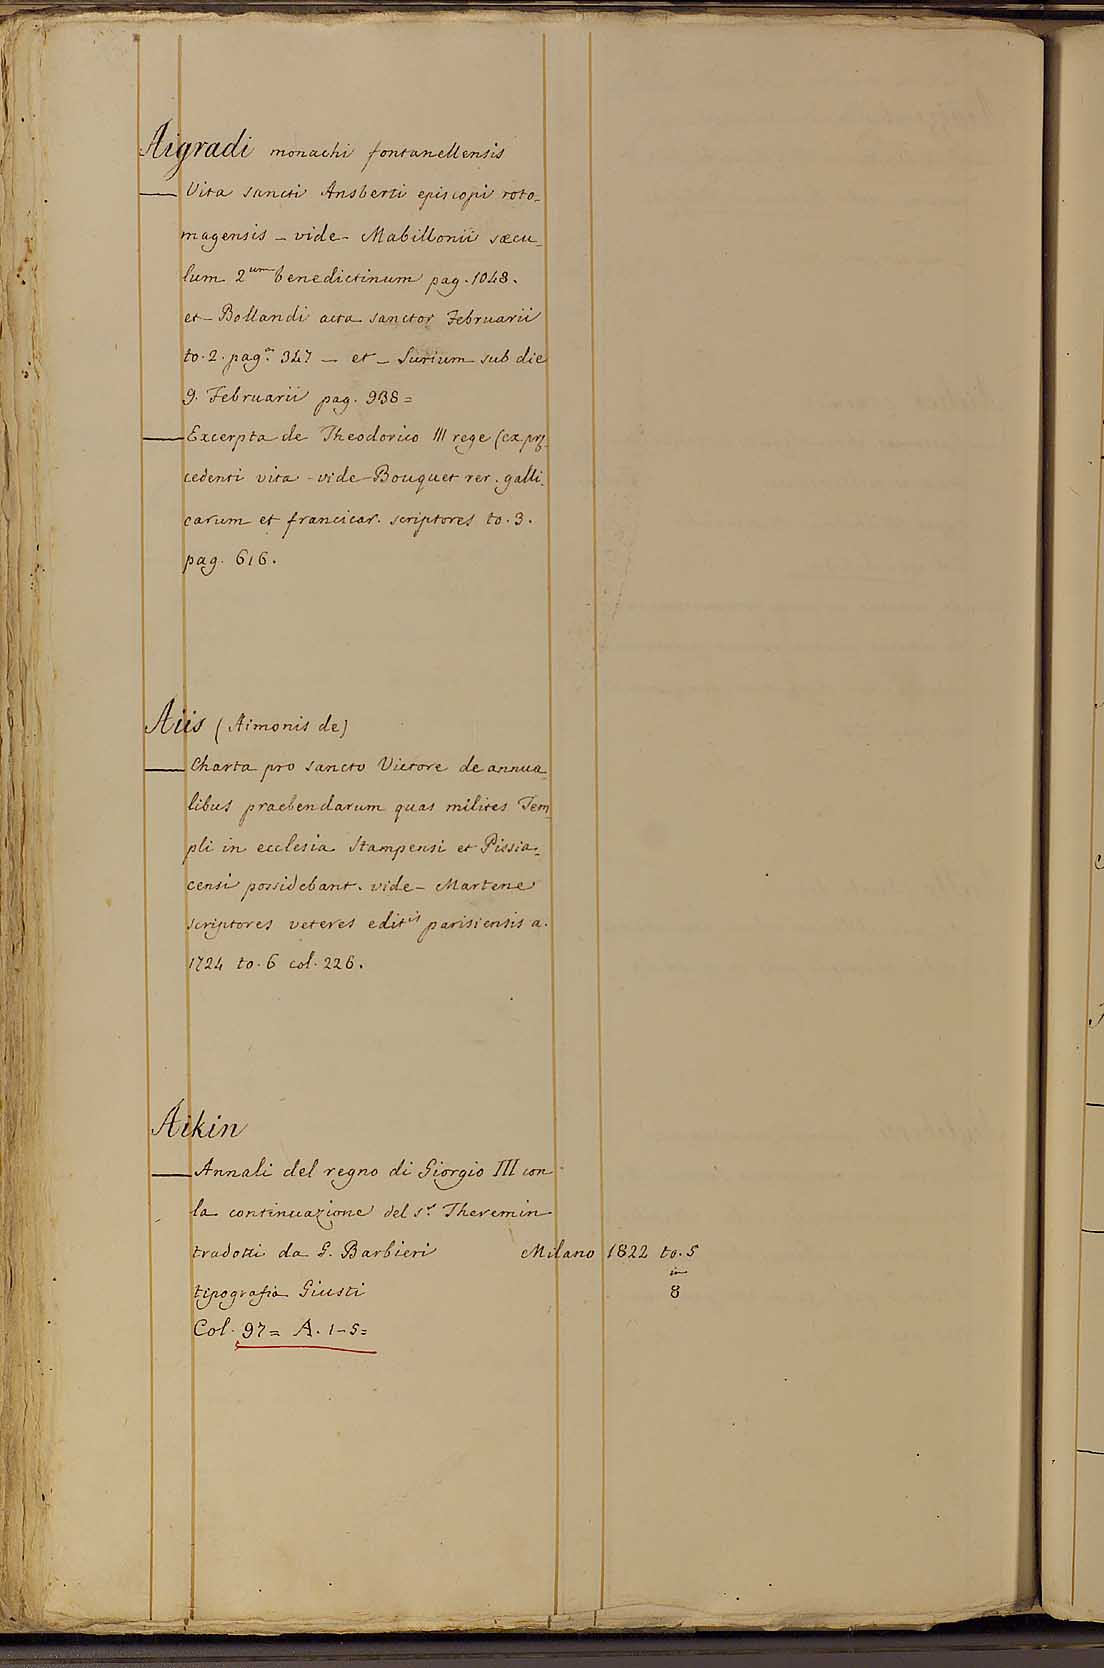 Aigradi monachi fontanellensis
— Vita sancti Ansberti episcopi roto-
magensis - vide - Mabillonii sæcu-
lum 2um benedictinum pag. 1048.
et - Bollandi acta sanctor Februarii
to. 2. pag.a 347 - et - Surium sub die
9. Februarii pag. 938 =
— Excerpta de Theodorico III rege (ex præ-
cedenti vita - vide - Bouquet rer. galli-
carum et francicar. scriptores to. 3.
pag. 616.
Aiis (Aimonis de)
— Charta pro sancto Victore de annua-
libus praebendarum quas milites Tem-
pli in ecclesia Stampensi et Pissia-
censi possidebant. vide - Martene
scriptores veteres editis parisiensis a.
1724 to. 6 col. 226.
Aikin
— Annali del regno di Giorgio III con
la continuazione del s.r Theremin
tradotti da G. Barbieri Milano 1822 to. 5
in
tipografia Giusti 8
Col. 97 = A. 1-5 =